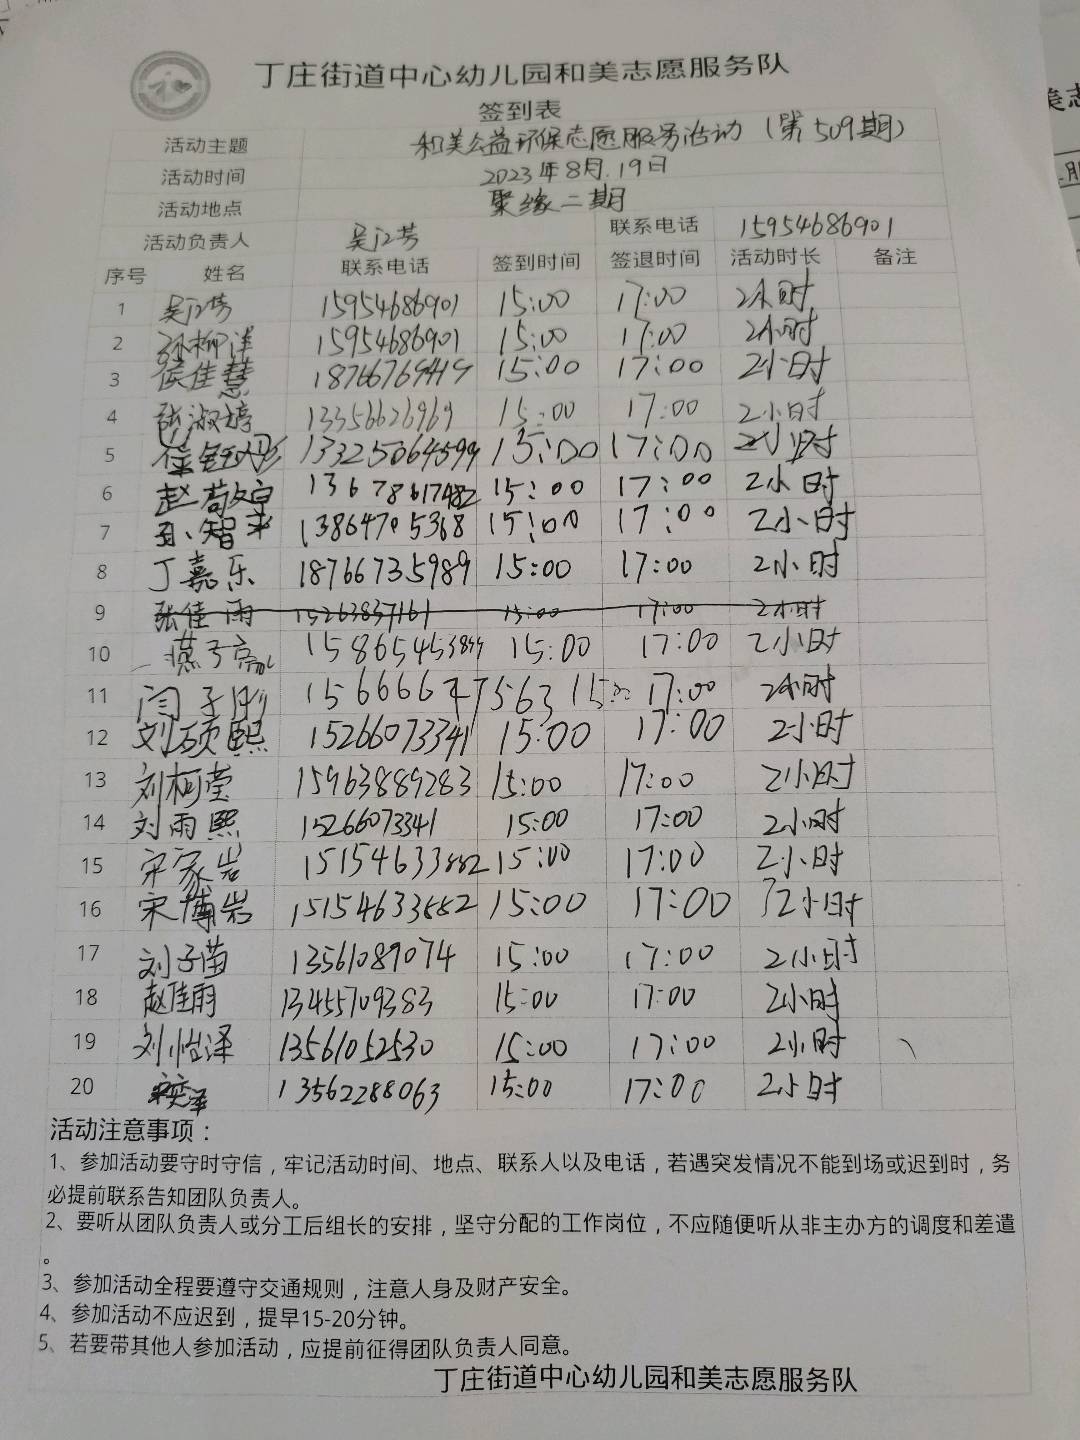 丁庄街道中心幼儿园和美志愿服务队
签到表
活动主题 和美公益环保志愿服务活动（第509期）
活动时间 2023年8月.19日
活动地点 聚缘二期
活动负责人 吴江芳 联系电话 15954686901
序号 姓名 联系电话 签到时间 签退时间 活动时长 备注
1 吴江芳 15954686901 15:00 17:00 2小时
2 孙柳洋 15954686901 15:00 17:00 2小时
3 侯佳慧 18766769419 15:00 17:00 2小时
4 张淑婷 13356626969 15:00 17:00 2小时
5 15:00 17:00 2小时
6 赵 13678617482 15:00 17:00 2小时
7 孙智 13864705368 15:00 17:00 2小时
8 丁嘉乐 18766735989 15:00 17:00 2小时
9 张佳雨 15263837161 15:00 17:00 2小时
10 燕子 15:00 17:00 2小时
11 闫子刚 15666647563 15:00 17:00 2小时
12 刘硕熙 15266073341 15:00 17:00 2小时
13 刘柯莹 15963889283 15:00 17:00 2小时
14 刘雨熙 15266073341 15:00 17:00 2小时
15 宋家岩 15154633882 15:00 17:00 2小时
16 宋博岩 15154633882 15:00 17:00 2小时
17 刘子菡 13561089074 15:00 17:00 2小时
18 赵佳雨 13455709383 15:00 17:00 2小时
19 刘怡泽 13561052530 15:00 17:00 2小时
20 13562288063 15:00 17:00 2小时
活动注意事项：
1、参加活动要守时守信，牢记活动时间、地点、联系人以及电话，若遇突发情况不能到场或迟到时，务
必提前联系告知团队负责人。
2、要听从团队负责人或分工后组长的安排，坚守分配的工作岗位，不应随便听从非主办方的调度和差遣
。
3、参加活动全程要遵守交通规则，注意人身及财产安全。
4、参加活动不应迟到，提早15-20分钟。
5、若要带其他人参加活动，应提前征得团队负责人同意。
丁庄街道中心幼儿园和美志愿服务队